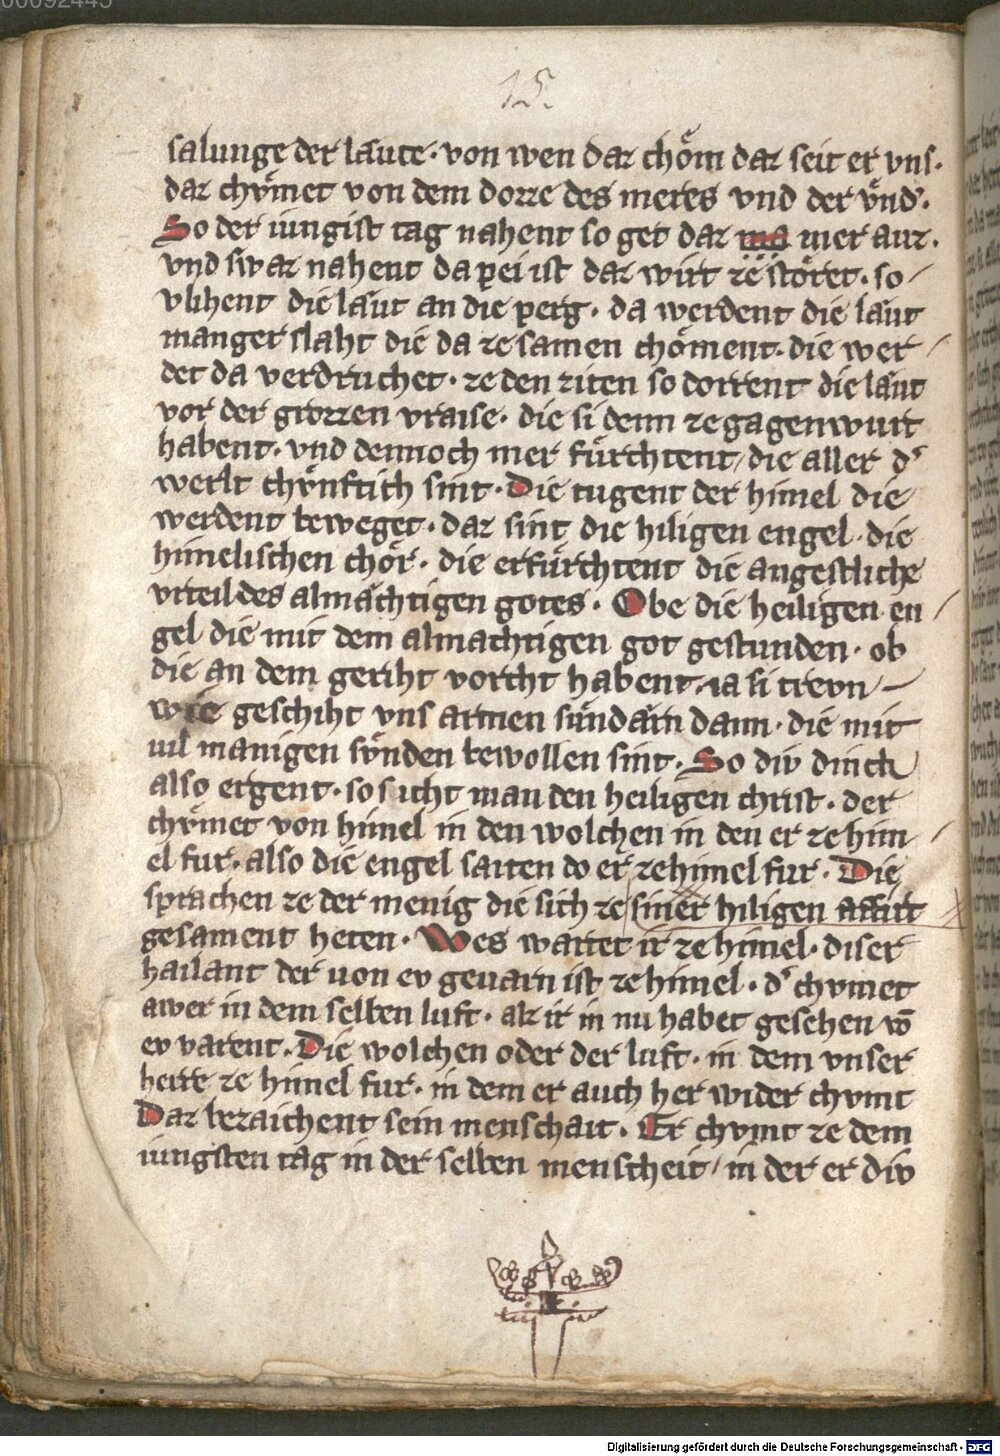 00092445
15.
salunge der laͤute · von wen daz choͤm daz seit er vns ·
daz chvͤmet von dem dozze des meres vnd der vͤnd᾿ ·
So der iungist tag nahent so get daz ma mer auz ·
vnd swaz nahent da pei ist daz wirt zestoͤret · so /
vlihent die laͤut an die perg · da werdent die laͤut
manger slaht die da zesamen choͤment · die wer /
det da verdruchet · ze den ziten so dorrent die laͤut
vor der grozzen vraise · die si denn ze gagenwurt
habent · vnd dennoch mer fuͤrchtent / die aller d᾿
werlt chvͤnftich sint · Die tugent der himel die
werdent beweget · daz sint die hiligen engel · die
himelischen choͤr · die erfuͤrchtent die angestliche
vrteil des almaͤchtigen gotes · Obe die heiligen en /
gel die mit dem almachtigen got gestunden · ob
die an dem geriht vorcht habent · ia si trevn —
wie geschiht vns armen suͤndaͤrn dann · die mit
uil manigen svͤnden bewollen sint · So div dinch
also ergent · so sicht man den heiligen christ · der
chvͤmet von himel in den wolchen in den er ze him /
el fur · also die engel saiten do er ze himel fur · Die
sprachen ze der menig die sich ze siner hiligen affart
gesament heten · Wes wartet ir ze himel · diser
hailant der uon ev geuarn ist ze himel · d᾿ chvmet
awer in dem selben luft · alz ir in nu habet gesehen vō
ev varent · Die wolchen oder der luft · in dem vnser
herre ze himel fur · in dem er auch her wider chvmt
Daz bezaichent sein menschait · Er chvmt ze dem
iungsten tag in der selben menscheit / in der er div
Digitalisierung gefördert durch die Deutsche Forschungsgemeinschaft - DFG